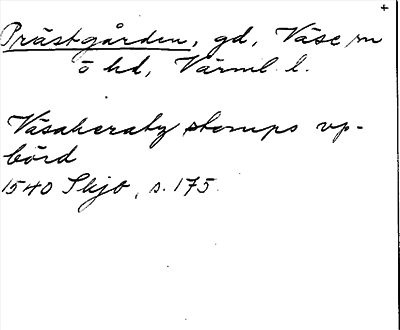 +
Prästgården, gd, Väse sn
ö hd, Värml. l.
Väsaheraby stomps vp-
börd
1540 Skjb, s. 175.